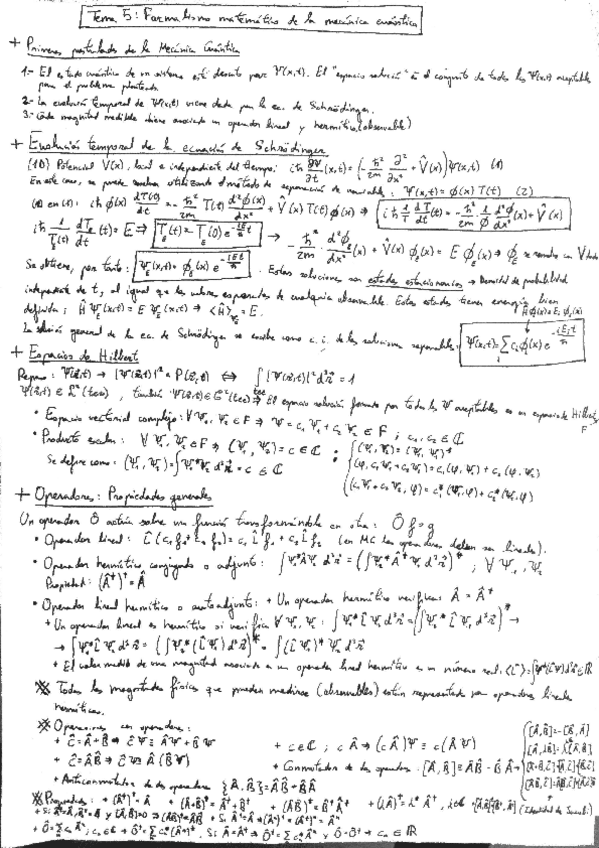 Tema 5: Formalismo matemático de la mecánica cuántica
+ Primeros postulados de la Mecánica Cuántica
1.- El estado cuántico de un sistema está descrito por Ψ(x,t). El "espacio solución" es el conjunto de todas las Ψ(x,t) aceptables
para el problema planteado.
2.- La evolución temporal de Ψ(x,t) viene dada por la ec. de Schrödinger.
3.- Cada magnitud medible tiene asociado un operador lineal y hermítico (observable)
+ Evolución temporal de la ecuación de Schrödinger
(1D) Potencial V(x), local e independiente del tiempo: iħ ∂Ψ/∂t (x,t) = (-ħ²/2m ∂²/∂x² + V̂(x)) Ψ(x,t) (1)
En este caso, se puede resolver utilizando el método de separación de variables: Ψ(x,t) = ϕ(x) T(t) (2)
(2) en (1): iħ ϕ(x) dT(t)/dt = -ħ²/2m T(t) d²ϕ(x)/dx² + V̂(x) T(t) ϕ(x) ⇒ iħ 1/T dT(t)/dt = -ħ²/2m 1/ϕ d²ϕ(x)/dx² + V̂(x)
iħ 1/T_E(t) dT_E(t)/dt = E ⇒ T_E(t) = T_E(0) e^{-iEt/ħ} → -ħ²/2m d²ϕ_E(x)/dx² + V̂(x) ϕ_E(x) = E ϕ_E(x) ⇒ ϕ_E se resuelve con V dado
Se obtiene, por tanto: Ψ_E(x,t) = ϕ_E(x) e^{-iEt/ħ}. Estas soluciones son estados estacionarios → Densidad de probabilidad
independiente de t, al igual que los valores esperados de cualquier observable. Estos estados tienen energía bien
definida: ĤΨ_E(x,t) = EΨ_E(x,t) ⇒ <Ĥ>_{Ψ_E} = E. Ĥϕ_i(x) = E_i ϕ_i(x)
La solución general de la ec. de Schrödinger se escribe como c.l. de las soluciones separables: Ψ(x,t) = Σ c_i ϕ_i(x) e^{-iE_i t/ħ}
+ Espacios de Hilbert
Repaso: Ψ(r⃗,t) → |Ψ(r⃗,t)|² = P(r⃗,t) ⇔ ∫|Ψ(r⃗,t)|² d³r⃗ = 1
Ψ(r⃗,t) ∈ L² (t∞), también Ψ(r⃗,t) ∈ C² (t∞) ⇒ El espacio solución formado por todas las Ψ aceptables es un espacio de Hilbert, F
• Espacio vectorial complejo: ∀ Ψ₁, Ψ₂ ∈ F ⇒ Ψ = c₁Ψ₁ + c₂Ψ₂ ∈ F ; c₁, c₂ ∈ ℂ
• Producto escalar: ∀ Ψ₁, Ψ₂ ∈ F ⇒ (Ψ₁, Ψ₂) = c ∈ ℂ ; (Ψ₁, Ψ₂) = (Ψ₂, Ψ₁)*
Se define como: (Ψ₁, Ψ₂) = ∫Ψ₁*Ψ₂ d³r⃗ = c ∈ ℂ (φ, c₁Ψ₁ + c₂Ψ₂) = c₁(φ, Ψ₁) + c₂(φ, Ψ₂)
(c₁Ψ₁ + c₂Ψ₂, φ) = c₁*(Ψ₁, φ) + c₂*(Ψ₂, φ)
+ Operadores: Propiedades generales
Un operador Ô actúa sobre una función transformándola en otra: Ô f = g
• Operador lineal: L̂(c₁f₁ + c₂f₂) = c₁L̂f₁ + c₂L̂f₂ (en MC los operadores deben ser lineales).
• Operador hermítico conjugado o adjunto: ∫Ψ₁*ÂΨ₂ d³r⃗ = (∫Ψ₂*Â⁺Ψ₁ d³r⃗)* ; ∀ Ψ₁, Ψ₂
Propiedad: (Â⁺)⁺ = Â
• Operador lineal hermítico o autoadjunto: + Un operador hermítico verifica: Â = Â⁺
+ Un operador lineal es hermítico si verifica ∀ Ψ₁, Ψ₂: ∫Ψ₁*L̂Ψ₂ d³r⃗ = (∫Ψ₂*L̂Ψ₁ d³r⃗)* →
→ ∫Ψ₁*L̂Ψ₂ d³r⃗ = (∫Ψ₂*(L̂Ψ₁) d³r⃗)* = ∫(L̂Ψ₁)*Ψ₂ d³r⃗
+ El valor medio de una magnitud asociada a un operador lineal hermítico es un número real: <L̂> = ∫Ψ*(L̂Ψ) d³r⃗ ∈ ℝ
※ Todas las magnitudes físicas que pueden medirse (observables) están representadas por operadores lineales
hermíticos.
※ Operaciones con operadores:
+ Ĉ = Â + B̂ ⇒ ĈΨ ≡ ÂΨ + B̂Ψ + c ∈ ℂ ; c → (cÂ)Ψ ≡ c(ÂΨ)
+ Ĉ = ÂB̂ ⇒ ĈΨ ≡ Â(B̂Ψ) + Conmutador de dos operadores: [Â, B̂] ≡ ÂB̂ - B̂Â → [Â, B̂] = -[B̂, Â]
+ Anticonmutador de dos operadores {Â, B̂} = ÂB̂ + B̂Â
※ Propiedades: + (Â⁺)⁺ = Â + (Â+B̂)⁺ = Â⁺ + B̂⁺ + (ÂB̂)⁺ = B̂⁺Â⁺ + (λÂ)⁺ = λ*Â⁺, λ∈ℂ (Identidad de Jacobi)
+ Si Â⁺=Â, B̂⁺=B̂ y [Â,B̂]=0 ⇒ (ÂB̂)⁺ = ÂB̂ + Si Â⁺=Â ⇒ (Âⁿ)⁺ = (Â⁺)ⁿ = Âⁿ
+ Ô = Σ cₙÂⁿ; cₙ∈ℂ ⇒ Ô⁺ = Σ cₙ*(Â⁺)ⁿ. Si Â=Â⁺ ⇒ Ô⁺ = Σ cₙ*Âⁿ y Ô=Ô⁺ → cₙ ∈ ℝ